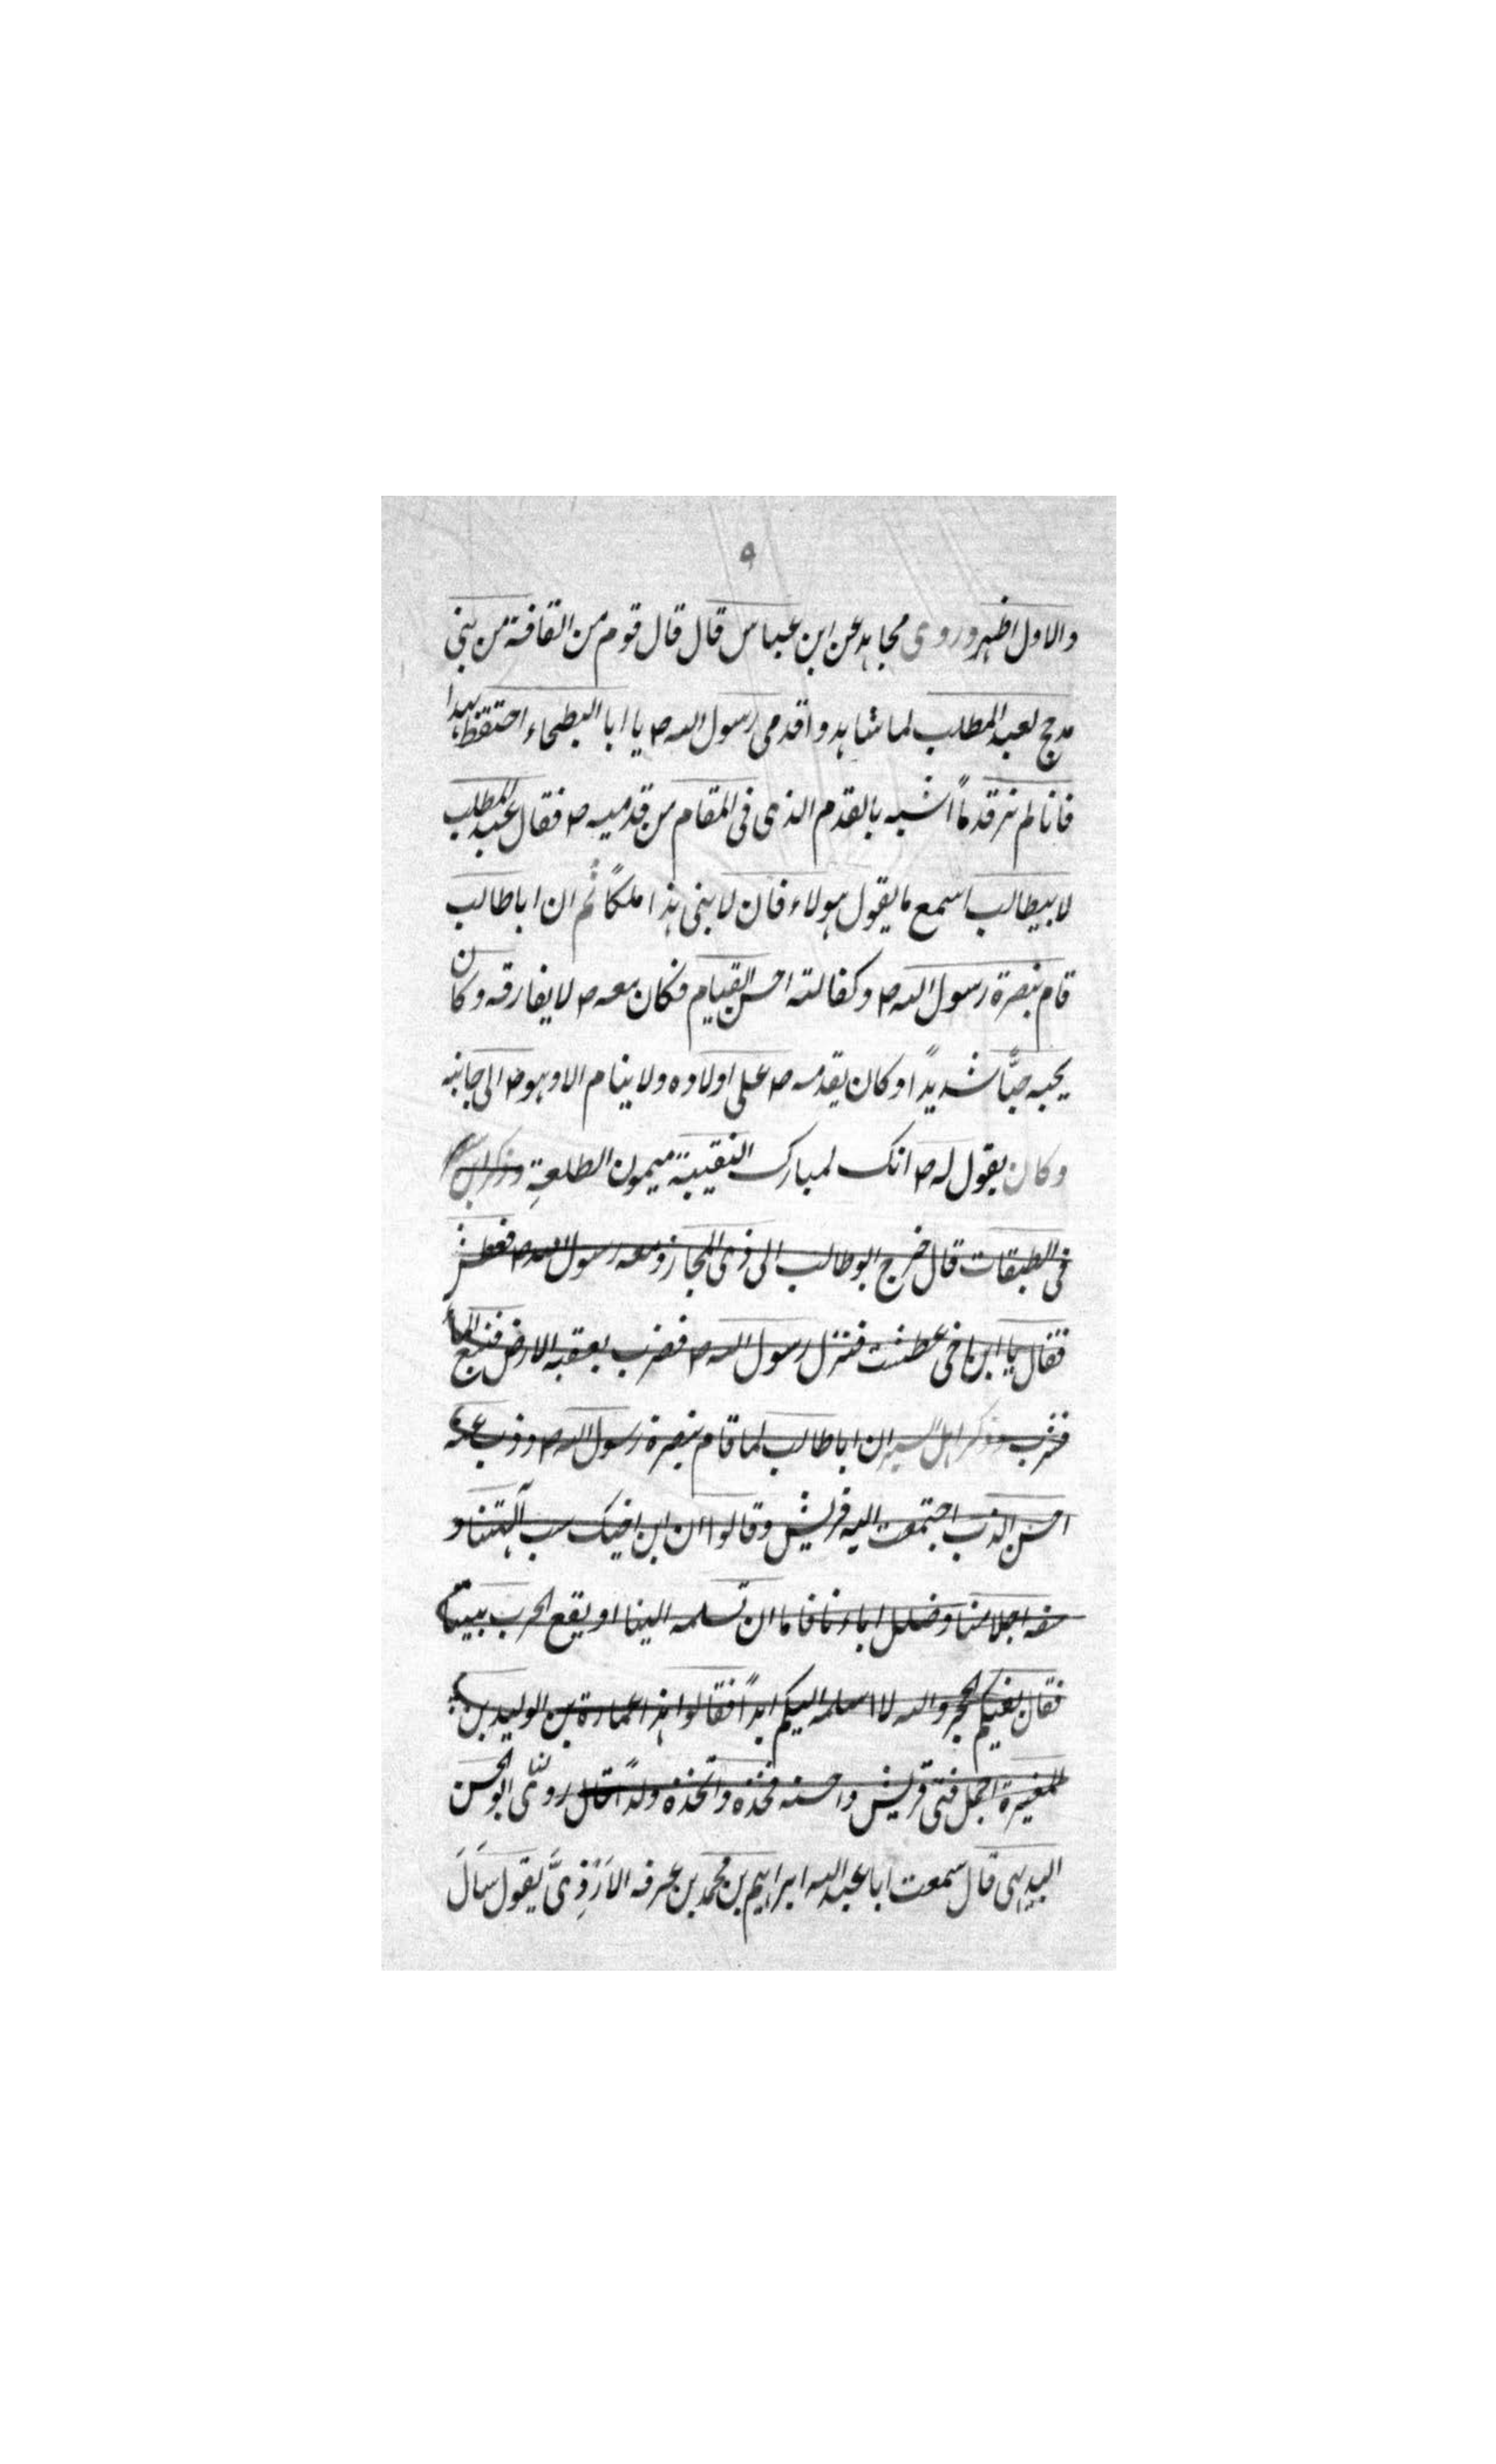 ٩
والاول اظهر وروى مجاهد عن ابن عباس قال قال قوم من القافة من بنى
مدلج لعبد المطلب لما شاهدوا قدمى رسول الله ص يا ابا البطحاء احتفظ بهذا
فانا لم نر قدماً اشبه بالقدم الذى فى المقام من قدميه ص فقال عبد المطلب
لابيطالب اسمع ما يقول هولاء فان لابنى هذا ملكاً ثم ان اباطالب
قام بنصرة رسول الله ص وكفالته احسن القيام فكان معه ص لا يفارقه وكان
يحبه حبًّا شديدًا وكان يقدمه ص على اولاده ولا ينام الا وهو ص الى جانبه
وكان يقول له ص انك لمبارك النقيبة ميمون الطلعة وذكر ابن سعد
فى الطبقات قال خرج ابوطالب الى ذى المجاز ومعه رسول الله ص فعطش
فقال يا ابن اخى عطشت فنزل رسول الله ص فضرب بعقبه الارض فنبع الما
فشرب وذكر اهل السير ان اباطالب لما قام بنصرة رسول الله ص وذب عنه
احسن الذب اجتمعت اليه قريش وقالوا ان ابن اخيك سب آلهتنا و
سفه احلامنا وضلل اباءنا فاما ان تسلمه الينا او يقع الحرب بيننا
فقال بفيكم الحجر والله لا اسلمه اليكم ابداً فقالوا هذا عمارة بن الوليد بن
المغيرة اجمل فتى قريش واحسنه فخذه واتخذه ولداً روى لنا ابو الحسن
البديهى قال سمعت ابا عبد الله ابراهيم بن محمد بن عرفه الازدى يقول سَأَلَ